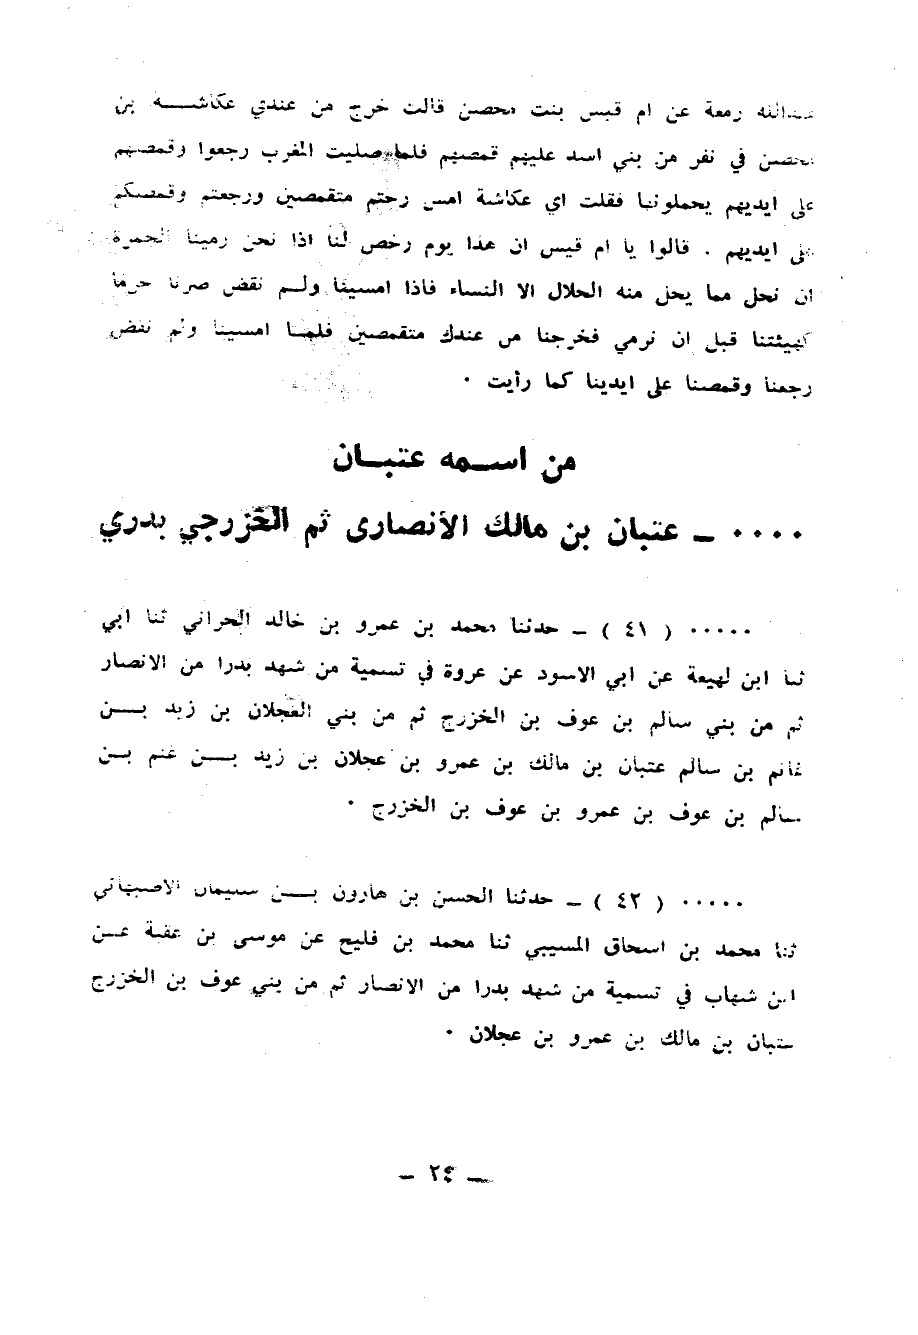 عبدالله رمعة عن ام قيس بنت محصن قالت خرج من عندي عكاشـــه بن
محصن في نفر من بني اسد عليهم قمصهم فلما صليت المغرب رجعوا وقمصهم
على ايديهم يحملونها فقلت اي عكاشة امس رحتم متقمصين ورجعتم وقمصكم
على ايديهم . قالوا يا ام قيس ان هذا يوم رخص لنا اذا نحن رمينا الجمرة
ان نحل مما يحل منه الحلال الا النساء فاذا امسينا ولـم نفض صرنا حرما
كهيئتنا قبل ان نرمي فخرجنا من عندك متقمصين فلمـا امسينا ولم نفض
رجعنا وقمصنا على ايدينا كما رأيت .
من اسـمه عتبـان
.... ــ عتبان بن مالك الأنصارى ثم الخزرجي بدري
..... ( ٤١ ) ــ حدثنا محمد بن عمرو بن خالد الحراني ثنا ابي
ثنا ابن لهيعة عن ابي الاسود عن عروة في تسمية من شهد بدرا من الانصار
ثم من بني سالم بن عوف بن الخزرج ثم من بني العجلان بن زيد بــن
غانم بن سالم عتبان بن مالك بن عمرو بن عجلان بن زيد بــن غنم بـن
سالم بن عوف بن عمرو بن عوف بن الخزرج .
..... ( ٤٢ ) ــ حدثنا الحسن بن هارون بــن سليمان الاصبهاني
ثنا محمد بن اسحاق المسيبي ثنا محمد بن فليح عن موسى بن عقبة عـن
ابن شهاب في تسمية من شهد بدرا من الانصار ثم من بني عوف بن الخزرج
عتبان بن مالك بن عمرو بن عجلان .
ــ ٢٤ ــ